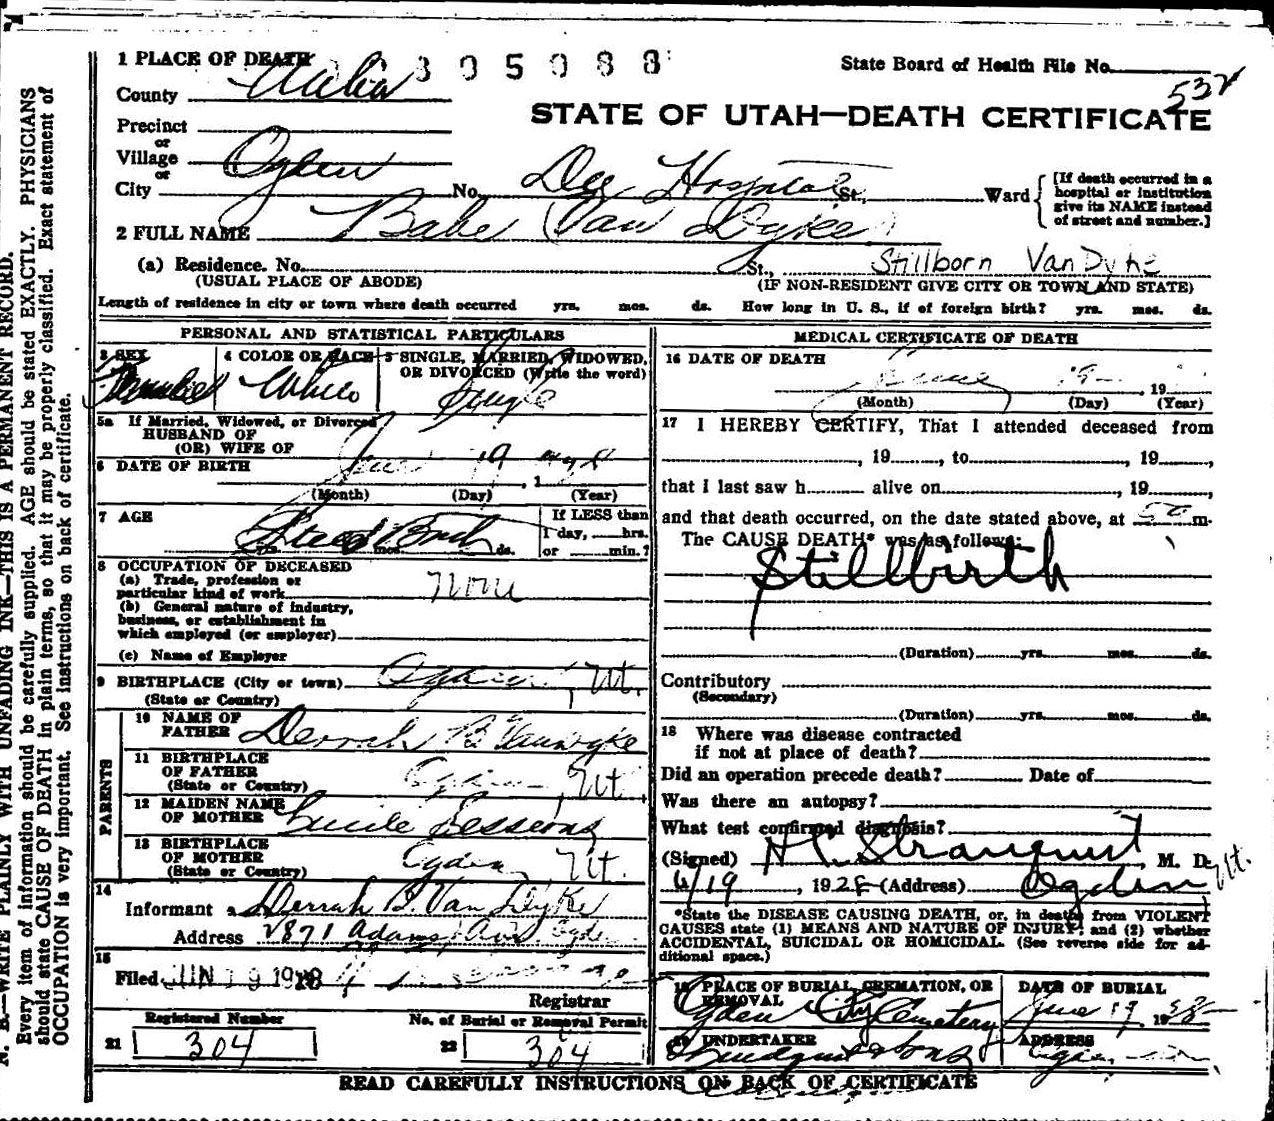 1 PLACE OF DEATH 305088 State Board of Health File No.
532
County
STATE OF UTAH—DEATH CERTIFICATE
Precinct
or
Village
or
City Ogden No. Dee Hospital St., Ward
[If death occurred in a hospital or institution give its NAME instead of street and number.]
2 FULL NAME Babe Van Dyke
(a) Residence. No. St., Stillborn VanDyke
(USUAL PLACE OF ABODE) (IF NON-RESIDENT GIVE CITY OR TOWN AND STATE)
Length of residence in city or town where death occurred yrs. mos. ds. How long in U. S., if of foreign birth? yrs. mos. ds.
PERSONAL AND STATISTICAL PARTICULARS
3 SEX
4 COLOR OR RACE White
5 SINGLE, MARRIED, WIDOWED, OR DIVORCED (Write the word) Single
5a If Married, Widowed, or Divorced
HUSBAND OF
(OR) WIFE OF
6 DATE OF BIRTH June 19
(Month) (Day) (Year)
7 AGE
yrs. mos. ds.
If LESS than
1 day, hrs.
or min.?
8 OCCUPATION OF DECEASED
(a) Trade, profession or
particular kind of work None
(b) General nature of industry,
business, or establishment in
which employed (or employer)
(c) Name of Employer
9 BIRTHPLACE (City or town) Ogden, Ut.
(State or Country)
PARENTS
10 NAME OF
FATHER Derrah B. Van Dyke
11 BIRTHPLACE
OF FATHER Ogden, Ut.
(State or Country)
12 MAIDEN NAME
OF MOTHER Lucile Sessions
13 BIRTHPLACE
OF MOTHER Ogden, Ut.
(State or Country)
14
Informant Derrah B. Van Dyke
Address 2871 Adams Ave. Ogden
15
Filed JUN 19 1928
Registrar
Registered Number No. of Burial or Removal Permit
21 304 22 304
MEDICAL CERTIFICATE OF DEATH
16 DATE OF DEATH
June 19 19
(Month) (Day) (Year)
17 I HEREBY CERTIFY, That I attended deceased from
, 19 , to , 19 ,
that I last saw h alive on , 19 ,
and that death occurred, on the date stated above, at m.
The CAUSE DEATH* was as follows:
Stillbirth
(Duration) yrs. mos. ds.
Contributory
(Secondary)
(Duration) yrs. mos. ds.
18 Where was disease contracted
if not at place of death?
Did an operation precede death? Date of
Was there an autopsy?
What test confirmed diagnosis?
(Signed) H C Stranquist M. D.
6/19, 1928 (Address) Ogden Ut.
*State the DISEASE CAUSING DEATH, or, in deaths from VIOLENT
CAUSES state (1) MEANS AND NATURE OF INJURY; and (2) whether
ACCIDENTAL, SUICIDAL OR HOMICIDAL. (See reverse side for ad-
ditional space.)
19 PLACE OF BURIAL, CREMATION, OR REMOVAL
Ogden City Cemetery
DATE OF BURIAL
June 19 1928
20 UNDERTAKER
Lindquist & Sons
ADDRESS
Ogden
READ CAREFULLY INSTRUCTIONS ON BACK OF CERTIFICATE
N. B.—WRITE PLAINLY WITH UNFADING INK—THIS IS A PERMANENT RECORD.
Every item of information should be carefully supplied. AGE should be stated EXACTLY. PHYSICIANS
should state CAUSE OF DEATH in plain terms, so that it may be properly classified. Exact statement of
OCCUPATION is very important. See instructions on back of certificate.